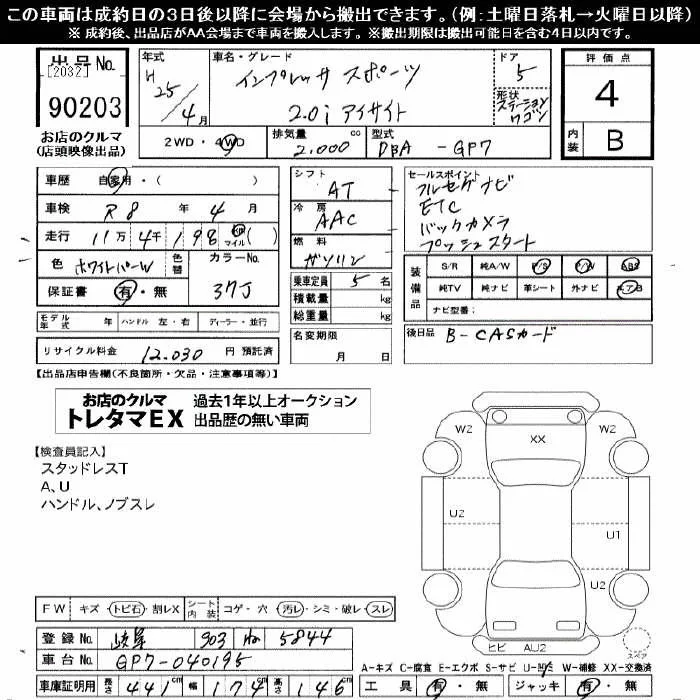 この車両は成約日の3日後以降に会場から搬出できます。(例:土曜日落札→火曜日以降)
※ 成約後、出品店がAA会場まで車両を搬入します。※搬出期限は搬出可能日を含む4日以内です。
出品No.
[2032]
90203
お店のクルマ
(店頭映像出品)
年式
H 25/4月
車名・グレード
インプレッサ スポーツ
2.0i アイサイト
ドア
5
形状
ステーションワゴン
評価点
4
内装
B
2WD・4WD
排気量
2.000 cc
型式
DBA -GP7
車歴 自家用・( )
車検 R8 年 4 月
走行 11万 4千 198 km マイル ( )
色 ホワイトパーW
色替
カラーNo.
37J
保証書 有・無
モデル年式 年 ハンドル 左・右 ディーラー・並行
リサイクル料金 12.030 円 預託済
シフト
AT
冷房
AAC
燃料
ガソリン
乗車定員 5 名
積載量 kg
総重量 kg
名変期限
月 日
セールスポイント
フルセグナビ
ETC
バックカメラ
プッシュスタート
装備品
S/R 純A/W P/S P/W ABS
純TV 純ナビ 革シート 外ナビ エアB
ナビ型番:
後日品 B-CASカード
【出品店申告欄(不良箇所・欠品・注意事項等)】
お店のクルマ
トレタマEX
過去1年以上オークション
出品歴の無い車両
【検査員記入】
スタッドレスT
A、U
ハンドル、ノブスレ
W2
XX
W2
U2
U1
U2
ヒビ AU2
スペア
FW キズ・トビ石・割レX
シート内装 コゲ・穴・汚レ・シミ・破レ・スレ
登録No. 岐阜 303 5844
車台No. GP7-040195
車庫証明用 長さ 441cm 幅 174cm 高さ 146cm
A-キズ C-腐食 E-エクボ S-サビ U-凹ミ W-補修 XX-交換済
工具 有・無 ジャッキ 有・無